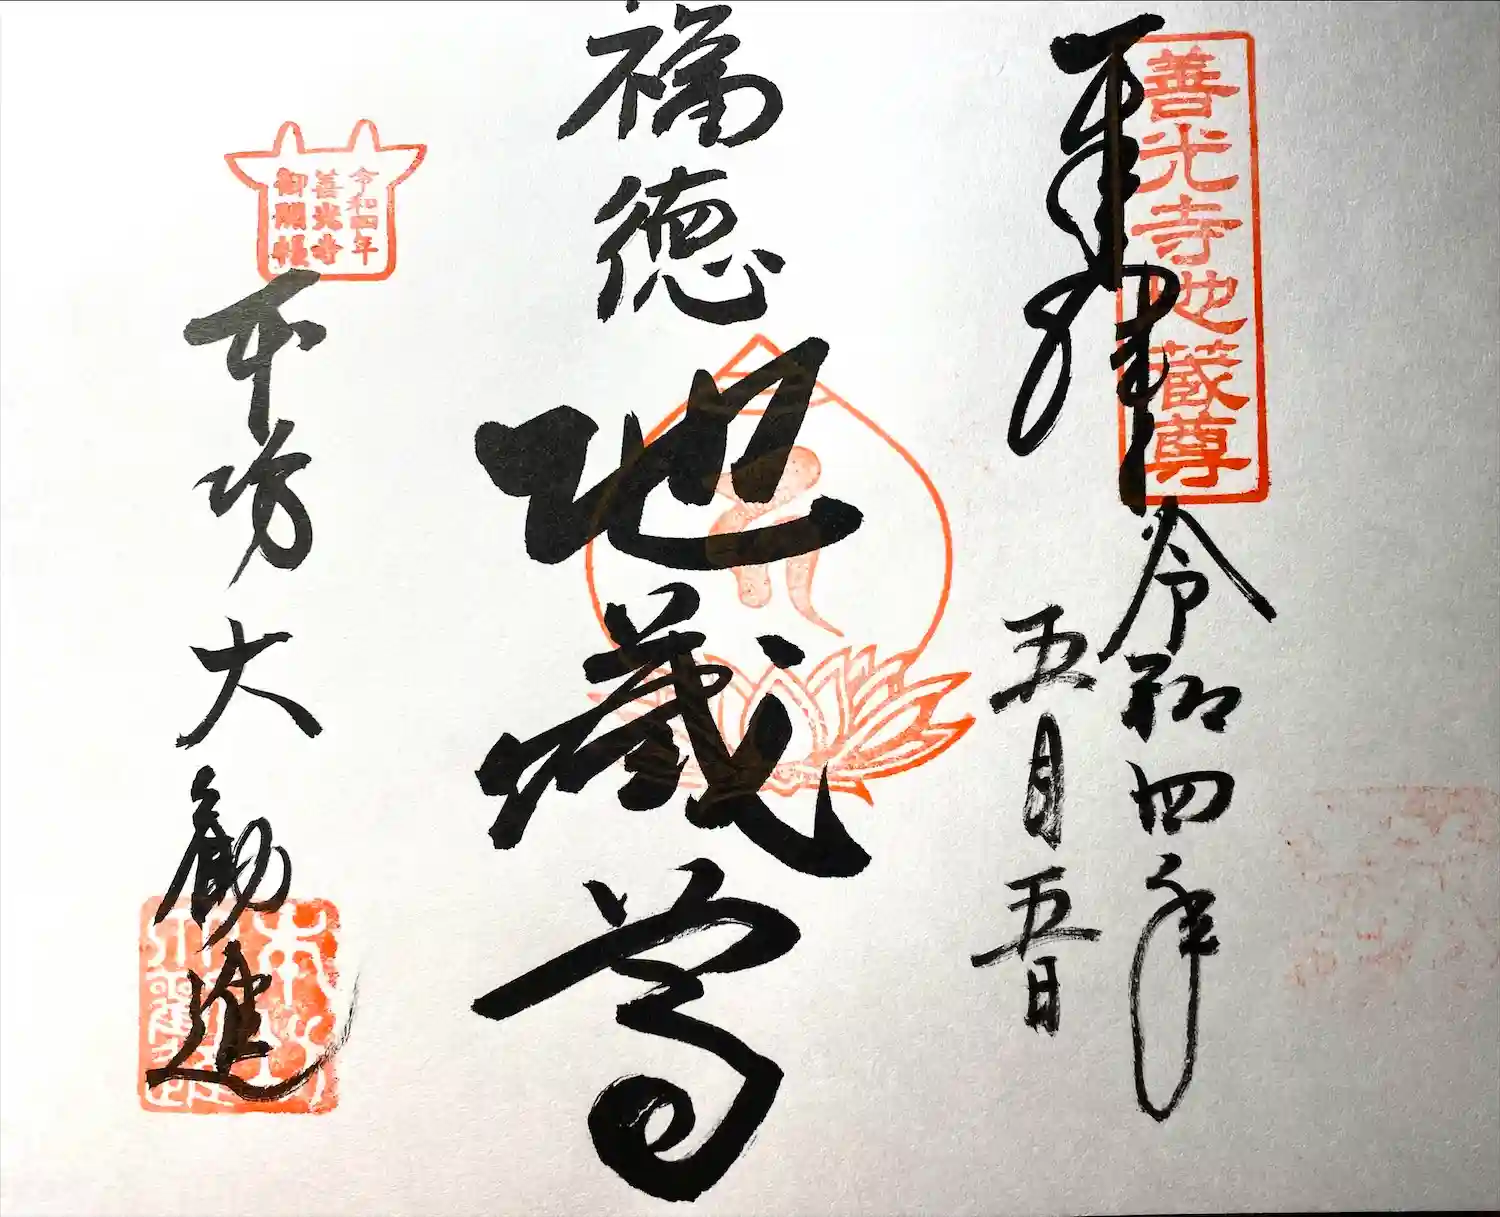 善光寺地蔵尊
奉拝
令和四年
五月五日
福徳
地蔵尊
令和四年
善光寺
御開帳
本坊
大勧進